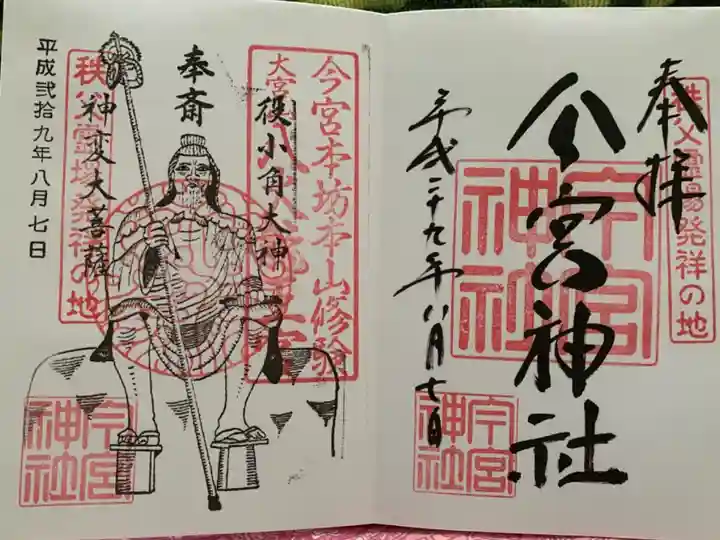 奉拝
秩父霊場発祥の地
今宮神社
今宮神社
平成二十九年八月七日
今宮神社
今宮本坊本山修験
大宮
役小角大神
奉斎
神変大菩薩
秩父霊場発祥の地
平成弐拾九年八月七日
今宮神社